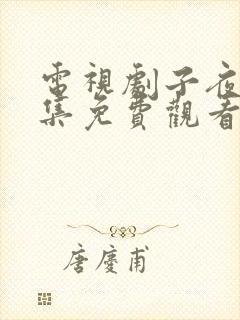 電視劇子夜
集免費觀看
唐慶甫